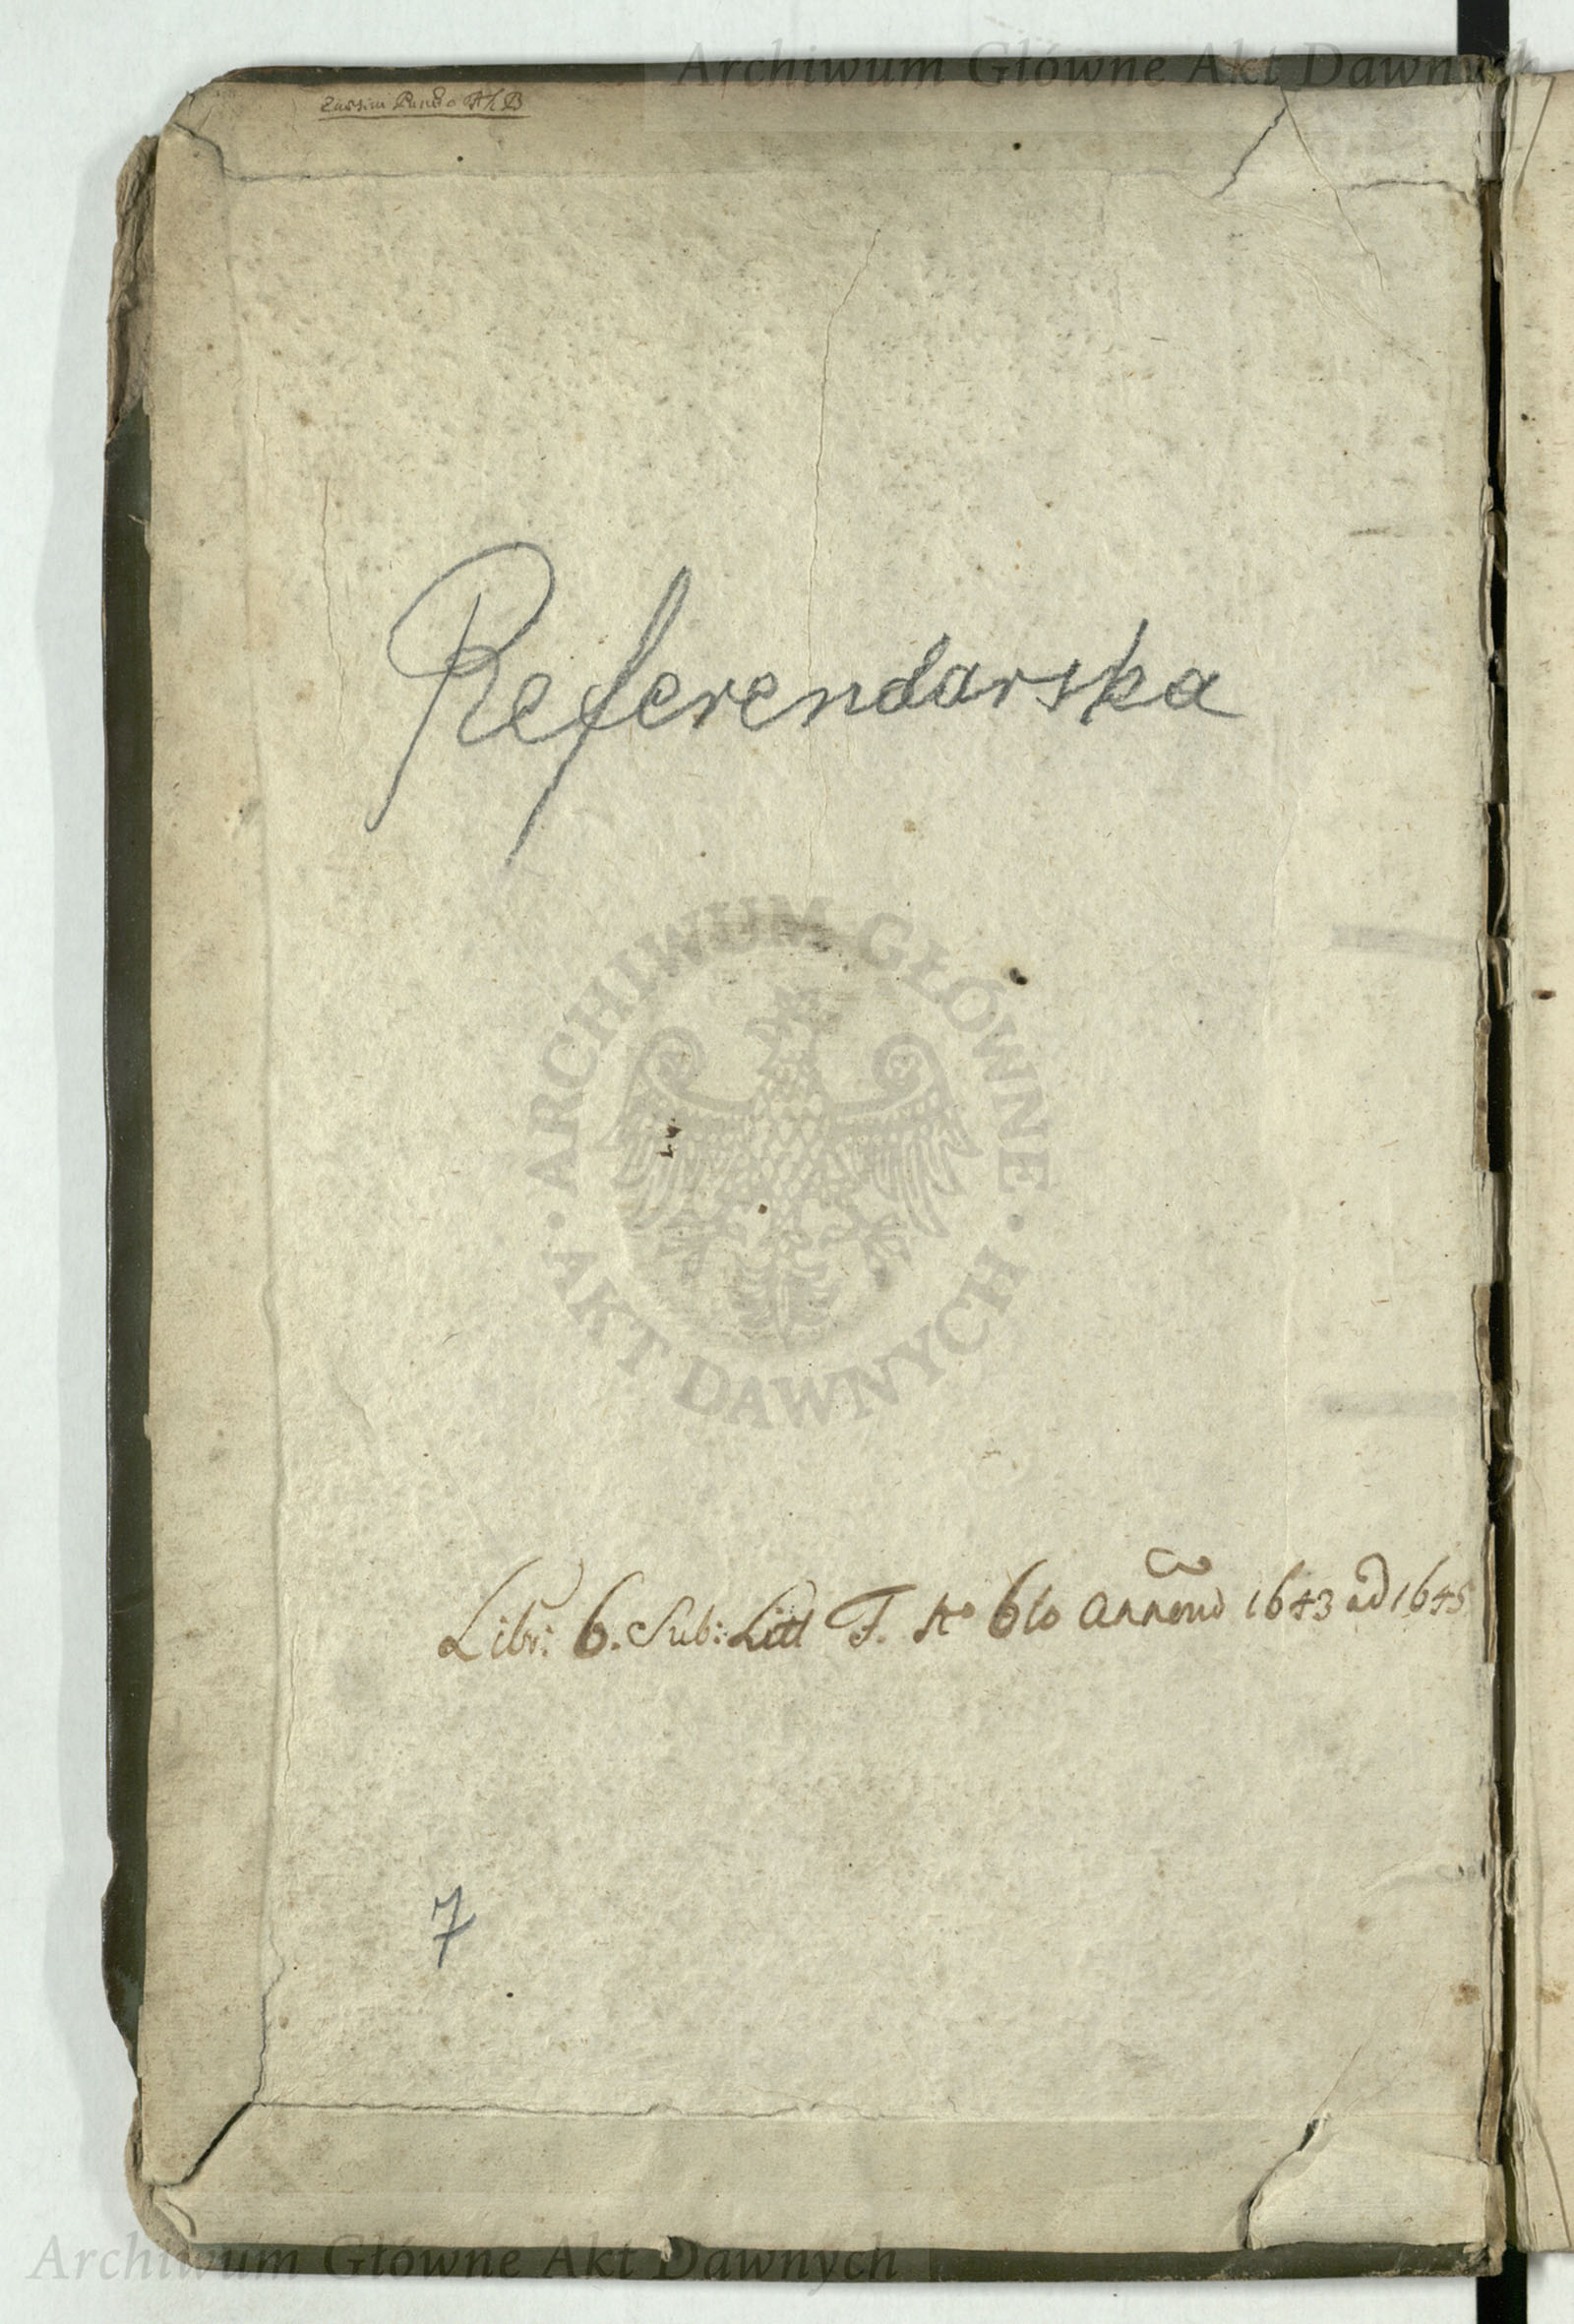 Archiwum Główne Akt Dawnych
Referendarska
ARCHIWUM GŁÓWNE
AKT DAWNYCH
Libr: 6. Sub: Litt F. No 6to 1643 ad 1645
7
Archiwum Główne Akt Dawnych